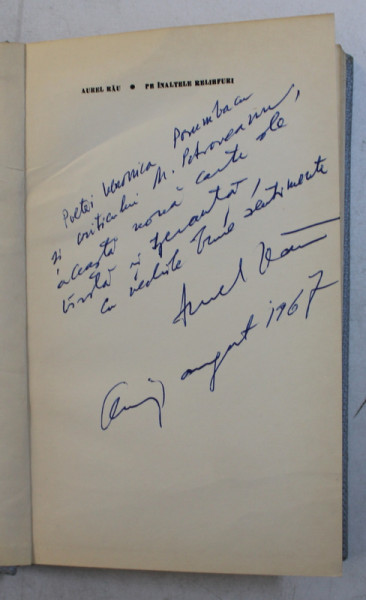 AUREL RĂU • PE ÎNALTELE RELIEFURI
Poetei Veronica Porumbacu
și criticului M. Petroveanu,
această nouă carte de
trudă și speranță,
cu vechile bune sentimente
Aurel Rău
Cluj august 1967